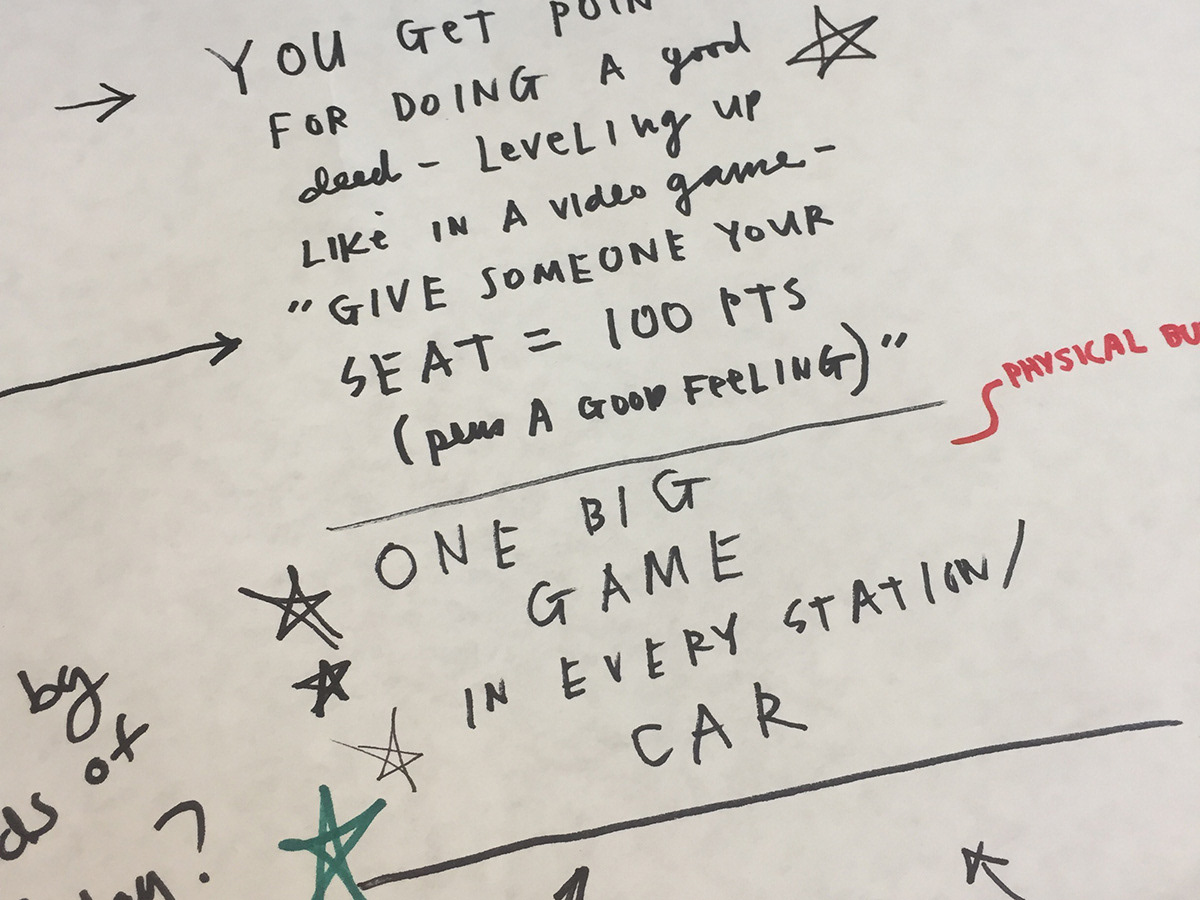 YOU GET POIN
FOR DOING A good
deed - LeveLing UP
LIKE IN A video game -
"GIVE SOMEONE YOUR
SEAT = 100 PTS
(plus A GOOD FeeLING)"
PHYSICAL BU
ONE BIG
GAME
IN EVERY STATION/
CAR
by
ds of
?